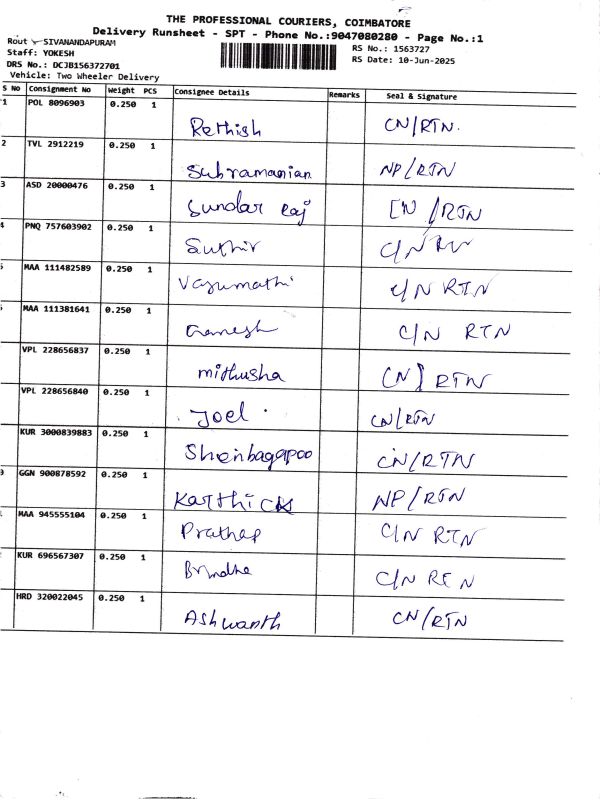 THE PROFESSIONAL COURIERS, COIMBATORE
Delivery Runsheet - SPT - Phone No.:9047080280 - Page No.:1
Rout SIVANANDAPURAM
RS No.: 1563727
Staff: YOKESH
RS Date: 10-Jun-2025
DRS No.: DCJB156372701
Vehicle: Two Wheeler Delivery
S No Consignment No Weight PCS Consignee Details Remarks Seal & Signature
1 POL 8096903 0.250 1 Rethish CN/RTN.
2 TVL 2912219 0.250 1 Subramanian NP/RTN
3 ASD 20000476 0.250 1 Sundar raj CN/RTN
4 PNQ 757603902 0.250 1 Suthir C/N
MAA 111482589 0.250 1 Vasumathi C/N RTN
MAA 111381641 0.250 1 Ganesh C/N RTN
VPL 228656837 0.250 1 mithusha CN) RTN
VPL 228656840 0.250 1 Joel CN/RTN
KUR 3000839883 0.250 1 Shenbagapoo CN/RTN
GGN 900878592 0.250 1 Karthick NP/RTN
MAA 945555104 0.250 1 Prathap C/N RTN
KUR 696567307 0.250 1 Brindha C/N
HRD 320022045 0.250 1 Ashwanth CN/RTN